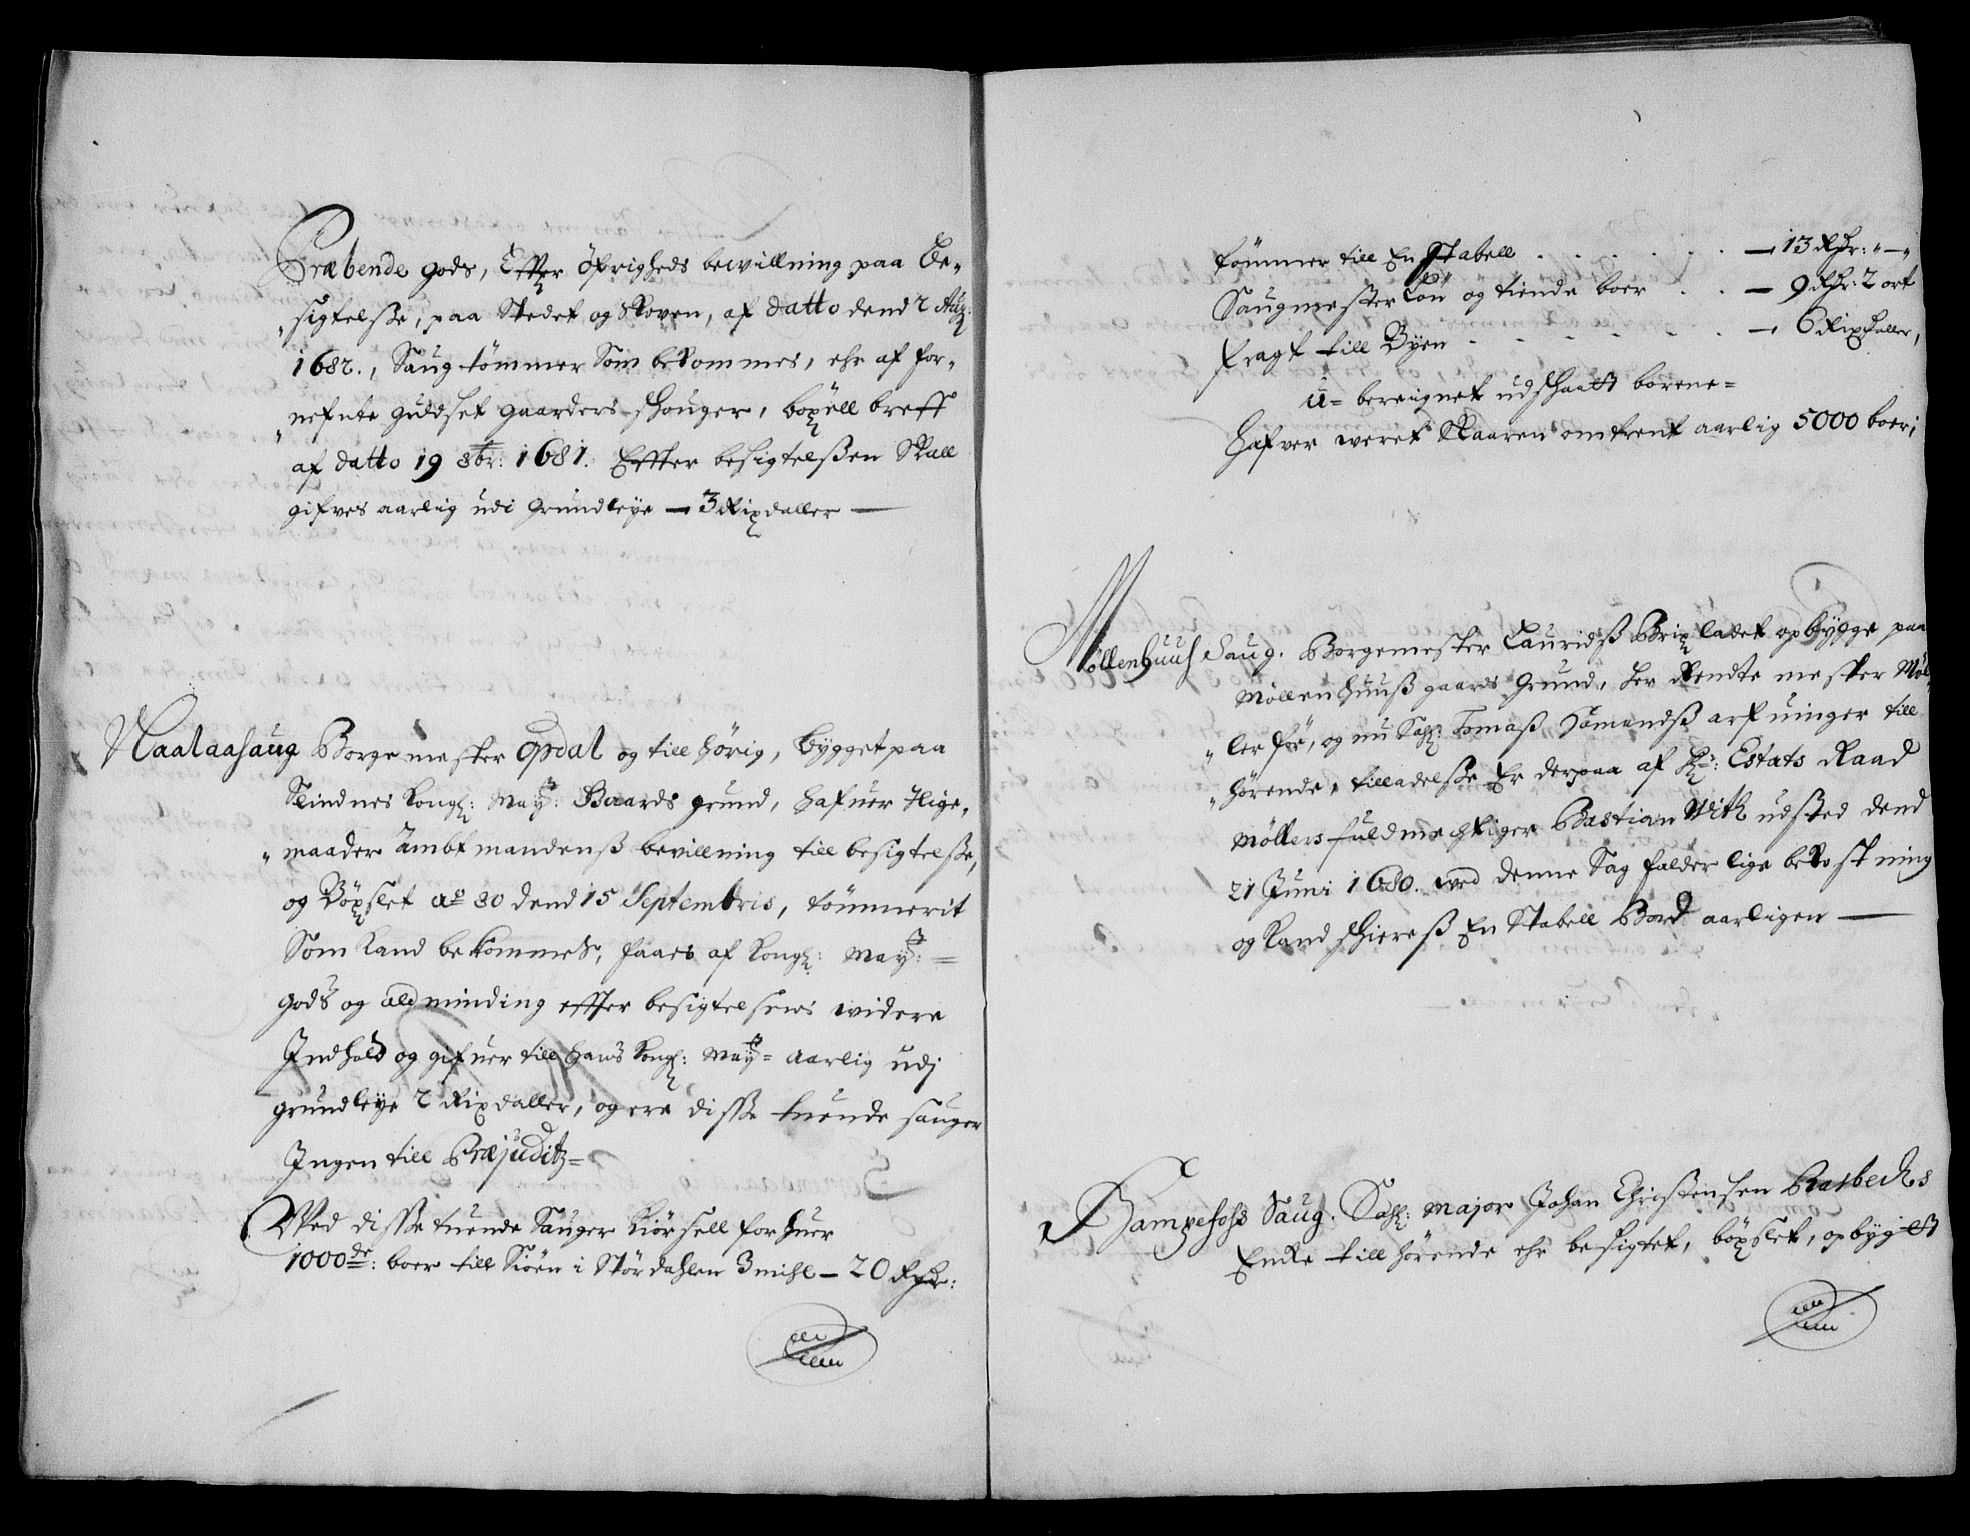 Præbende gods, Effter öfrigheds bewillning paa be„
„sigtelsse, paa Stedet og Skoven, af datto dend 2 Aug:
1682., Saug tömmer Som bekommes, ehr af for„
„nefnte guldset gaarders schouger, böxell breff
af datto 19 8br: 1681. Effter besigtelßen Skall
gifves aarlig udi Grundleye — 3 Rixdaller —
Naalaasaug Borgemester Opdal og till hörig, bygget paa
Slindnes Kongl: May: Baards grund, hafuer Ilige„
„maader Ambtmandenß bevillning till besigtelsse,
og Böxslet ao 80 dend 15 Septembris, tömmerit
Som kand bekommes, faaes af Kongl: May: =
gods og aldminding effter besigtelsens widere
Indhold og gifuer till hans Kongl: May= aarlig udj
grundleye 2 Rixdaller, og ere disse tuende sauger
Ingen till Præjuditz=
Wed disse tuende Sauger kiörsell for huer
1000de: boer till Siöen i Stördahlen 3 mihl — 20 Rdr:
tömmer till En Stabell . . . . . . — 13 Rdr: „ — „
Saugmester Lön og tiende boer . . — 9 Rdr: 2 ort
fragt till Byen . . . . . . — 6 Rixdaller,
u= bereignet udschaatt borene=
hafver weret Skaaren omtrent aarlig 5000 boer;
Möllenhuus Saug. Borgemester Lauridß Brix ladet opbygge paa
Möllenhuuß gaards Grund, her Rendte mester Möl„
„ler för, og nu Sahl: Tomaß Hamandß arfuinger till
„hörende, tilladelsse Er derpaa af Hr: Estats Raad
Möllers fuldmechtiger Bastian With udsted dend
21 Juni 1680. wed denne Sag falder lige bekostning
og kand schiereß En Stabell Bord aarligen —
Hampefoss Saug. Sahl: Major Johan Christensen Basbecks
Encke till hörende ehr besigtet, böxslet, opbygitt